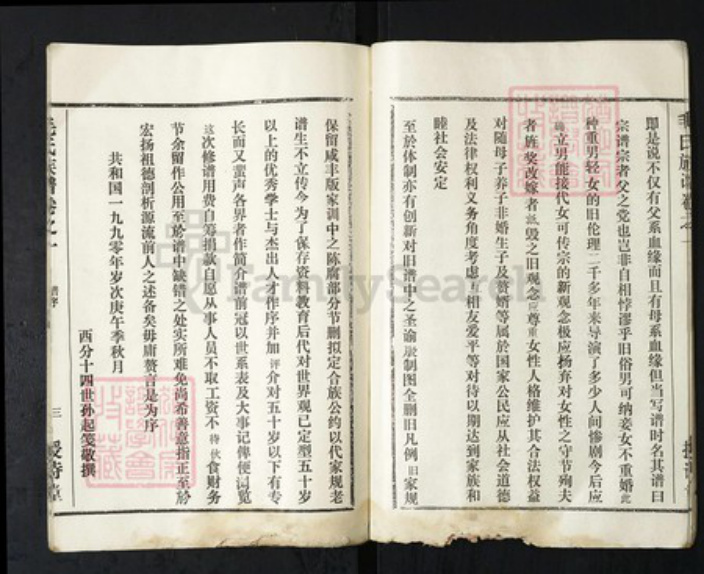 毛氏族谱卷之一
即是说不仅有父系血缘而且有母系血缘但当写谱时名其谱曰
宗谱宗者父之党也岂非自相悖谬乎旧俗男可纳妾女不重婚此
种重男轻女的旧伦理二千多年来导演了多少人间惨剧今后应
确立男能接代女可传宗的新观念极应杨弃对女性之守节殉夫
者旌奖改嫁者诋毁之旧观念应尊重女性人格维护其合法权益
对随母子养子非婚生子及赘婿等属於国家公民应从社会道德
及法律权利义务角度考虑互相友爱平等对待以期达到家族和
睦社会安定
至於体制亦有创新对旧谱中之圣谕服制图全删旧凡例旧家规
保留咸丰版家训中之陈腐部分节删拟定合族公约以代家规老
谱生不立传今为了保存资料教育后代对世界观已定型五十岁
以上的优秀学士与杰出人才作序并加评介对五十岁以下有专
长而又蜚声各界者作简介谱前冠以世系表及大事记俾便阅览
这次修谱用费自筹捐款自愿从事人员不取工资不待伙食财务
节余留作公用至於谱中缺错之处实所难免尚希善意指正至於
宏扬祖德剖析源流前人之述备矣毋庸赘言是为序
共和国一九九零年岁次庚午季秋月
西分十四世孙起笺敬撰
毛氏族谱卷之一
谱序
三
FamilySearch